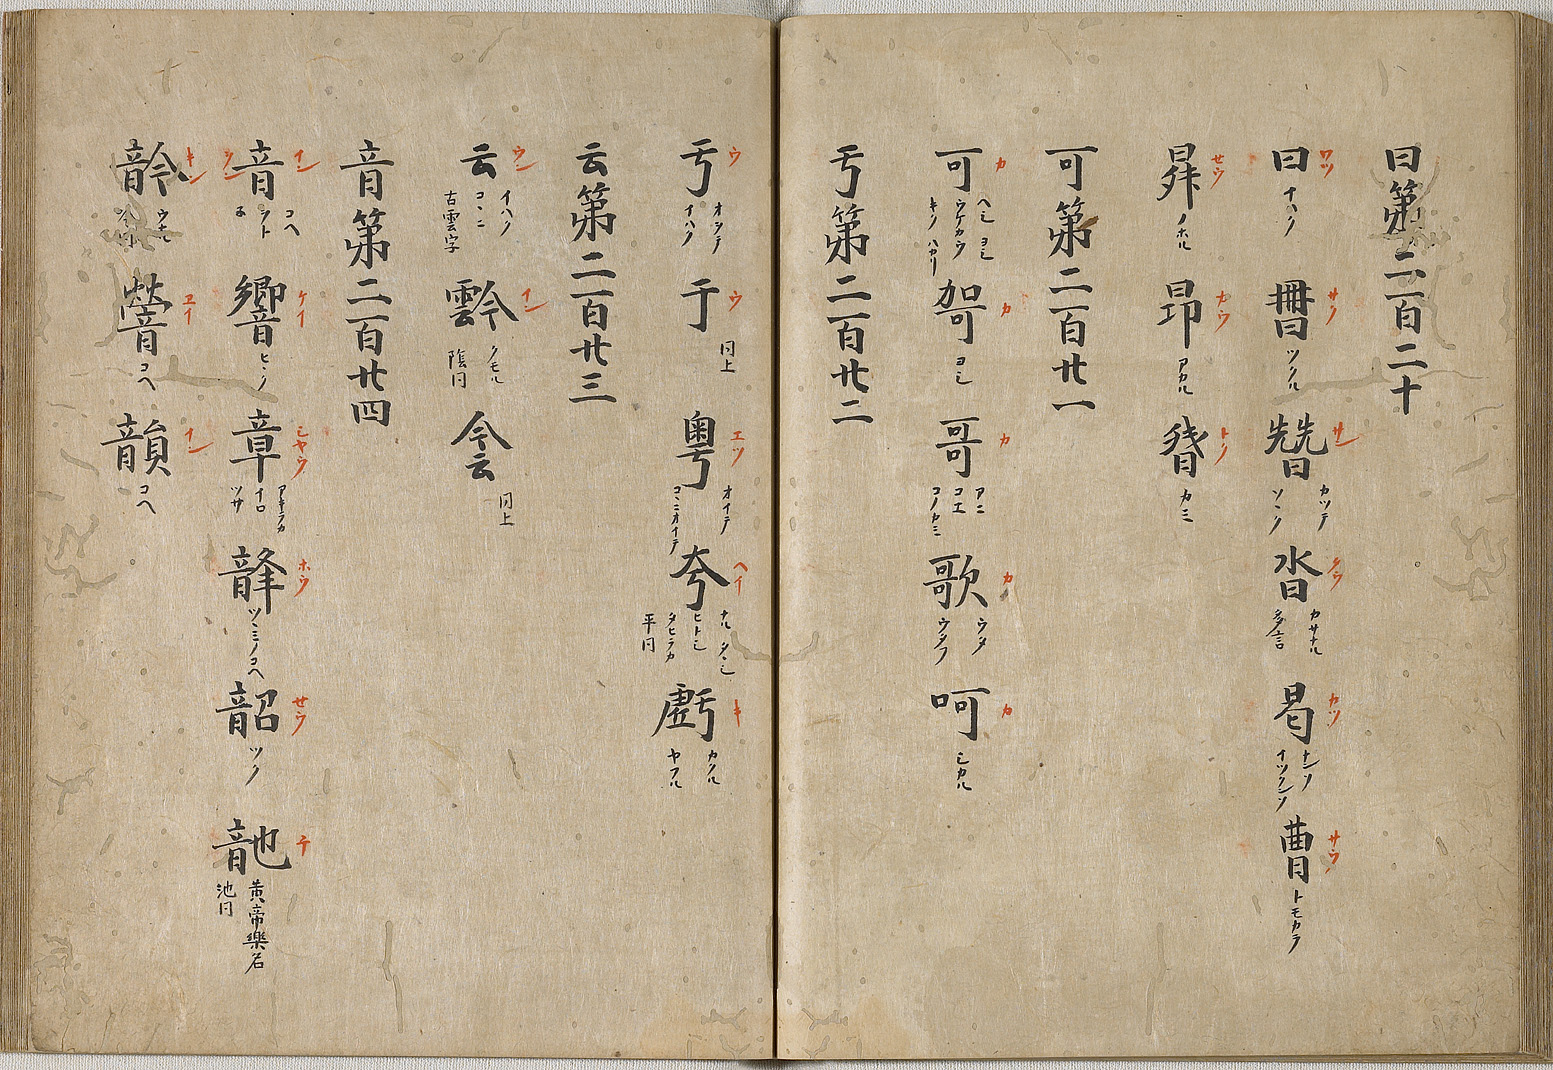 曰第二百二十
曰 ワツ イハク 𠕋 サク ツクル 朁 サン カツテ ソシク 沓 タウ カサナル 多言 曷 カツ ナンソ イツクンソ 曹 サウ トモカラ
昇 せウ ノホル 昂 カウ アカル 朁 トク カミ
可第二百廿一
可 カ ヘシ ヨシ ウケカウ キク ハカリ 哿 カ ヨシ 哥 カ アニ コエ コノカミ 歌 カ ウタ ウタフ 呵 カ シカル
亐第二百廿二
亐 ウ オヲテ イハク 于 ウ 同上 粤 エツ オイテ コヽニオイテ 夸 ヘイ ナル タヽシ ヒトシ タヒラカ 平同 虧 キ カクル ヤフル
云第二百廿三
云 ウン イハク コヽニ 古雲字 霒 イン クモル 陰同 侌 同上
音第二百廿四
音 イン コヘ ヲト 響 ケイ ヒヽク 章 シヤウ アキラカ ツサ 韸 ホウ ツヽミノコヘ 韶 せウ ツク 䪧 チ 黄帝樂名 池同
䪩 キン 䪯 エイ コヘ 韻 イン コヘ